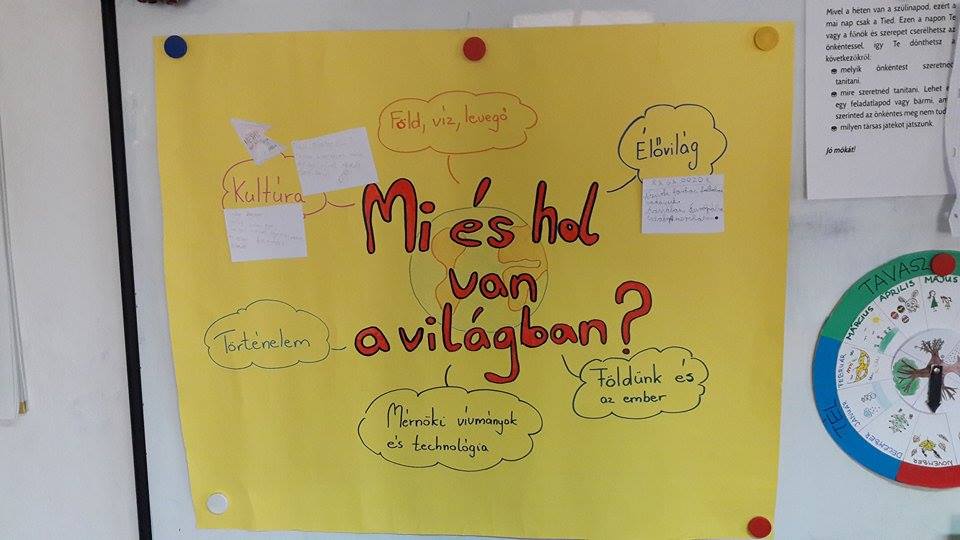 Föld, víz, levegő
Élővilág
Kultúra
Mi és hol
van
a világban?
Történelem
Földünk és
az ember
Mérnöki vívmányok
és technológia
Mivel a héten van a szülinapod, ezért a
mai nap csak a Tied. Ezen a napon Te
vagy a főnök és szerepet cserélhetsz az
önkéntessel, így Te dönthetsz a
következőkről:
melyik önkéntest szeretnéd
tanítani.
mire szeretnéd tanítani. Lehet
egy feladatlapod vagy bármi,
szerinted az önkéntes még nem tud
milyen társas játékot játszunk.
Jó mókát!
TAVASZ
MÁRCIUS
ÁPRILIS
MÁJUS
TÉL
FEBRUÁR
JANUÁR
DECEMBER
NOVEMBER